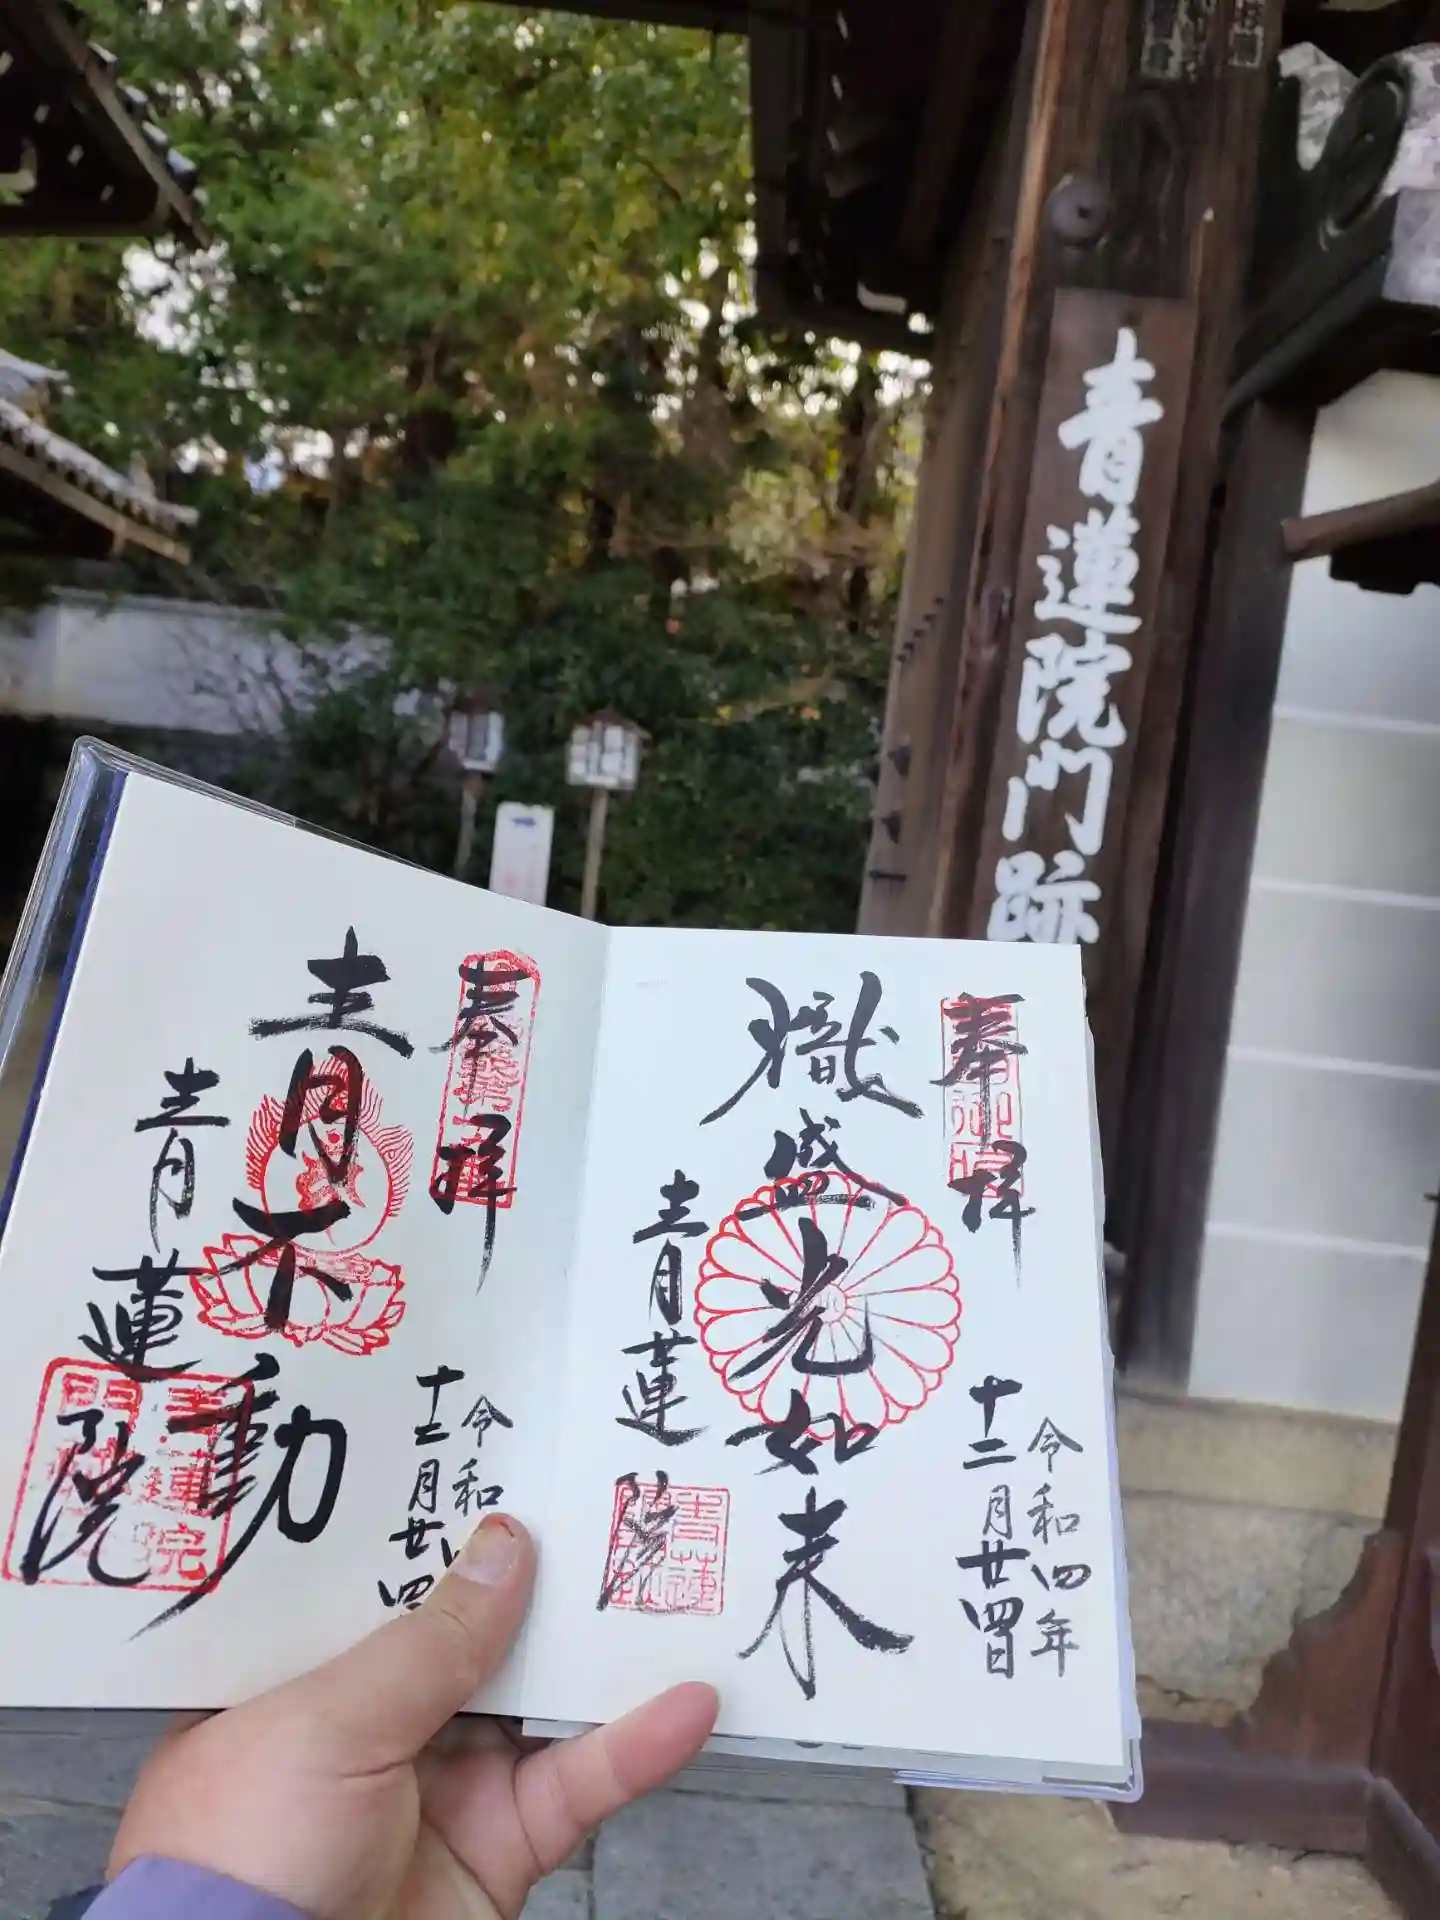 青蓮院門跡
奉拝
令和四年
十二月廿四日
熾盛光如来
青蓮院
奉拝
令和四
十二月廿四
青不動
青蓮院